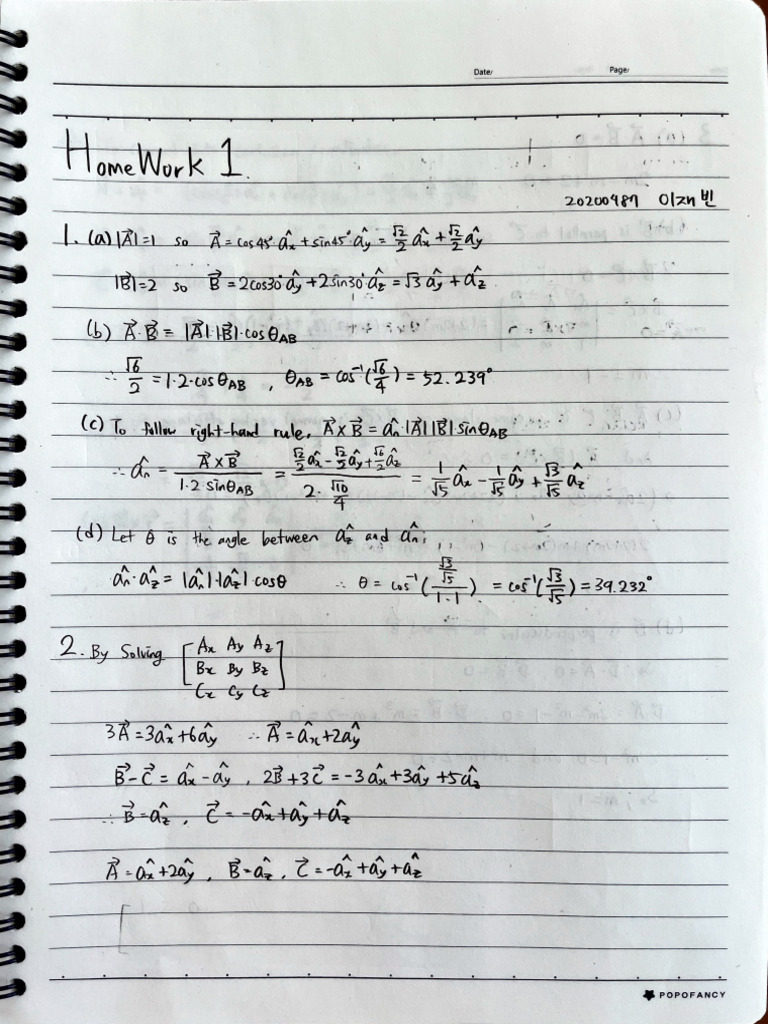 Date: Page:
HomeWork 1.
20200987 이재빈
1. (a) |A⃗|=1 so A⃗ = cos45°·âx + sin45°·ây = √2/2 âx + √2/2 ây
|B⃗|=2 so B⃗ = 2cos30°·ây + 2sin30°·âz = √3 ây + âz
(b) A⃗·B⃗ = |A⃗|·|B⃗|·cosθAB
∴ √6/2 = 1·2·cosθAB , θAB = cos⁻¹(√6/4) = 52.239°
(c) To follow right-hand rule, A⃗×B⃗ = ân·|A⃗||B⃗|·sinθAB
∴ ân = (A⃗×B⃗)/(1·2 sinθAB) = (√2/2 âx - √2/2 ây + √6/2 âz)/(2·√10/4) = 1/√5 âx - 1/√5 ây + √3/√5 âz
(d) Let θ is the angle between âz and ân,
ân·âz = |ân|·|âz|·cosθ ∴ θ = cos⁻¹((√3/√5)/(1·1)) = cos⁻¹(√3/√5) = 39.232°
2. By Solving [Ax Ay Az
Bx By Bz
Cx Cy Cz]
3A⃗ = 3âx + 6ây ∴ A⃗ = âx + 2ây
B⃗ - C⃗ = âx - ây , 2B⃗ + 3C⃗ = -3âx + 3ây + 5âz
∴ B⃗ = âz , C⃗ = -âx + ây + âz
A⃗ = âx + 2ây , B⃗ = âz , C⃗ = -âx + ây + âz
POPOFANCY